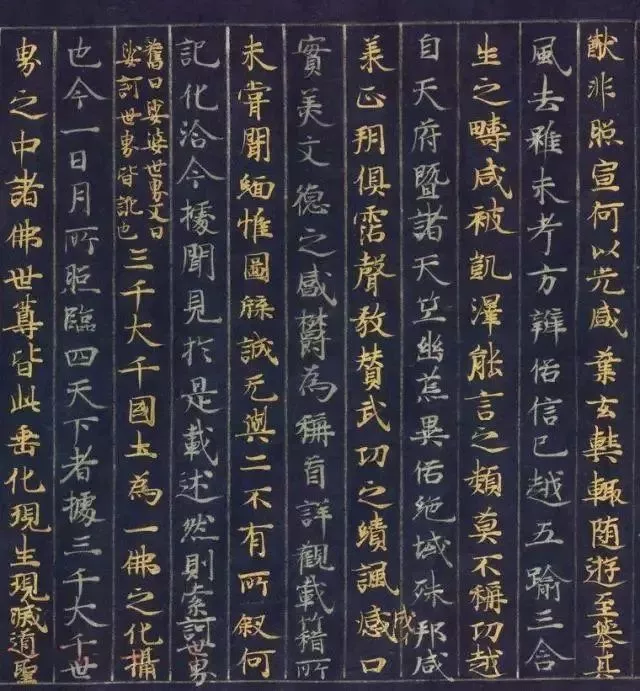 猷非照宣何以光咸業玄奘輙随遊至舉其
風去雖未考方辨俗信已越五踰三含
生之疇咸被凱澤能言之類莫不稱功越
自天府暨諸天竺幽荒異俗絶域殊邦咸
承正朔俱霑聲教賛武功之績諷感口
成
實美文德之感欝為稱首詳觀載籍所
未甞聞緬惟圖牒誠无與二不有所叙何
記化洽今據聞見於是載述然則索訶世界
舊曰娑婆世界又曰
娑訶世界皆訛也
三千大千國土為一佛之化攝
也今一日月所照臨四天下者據三千大千世
界之中諸佛世尊皆此垂化現生現滅道聖